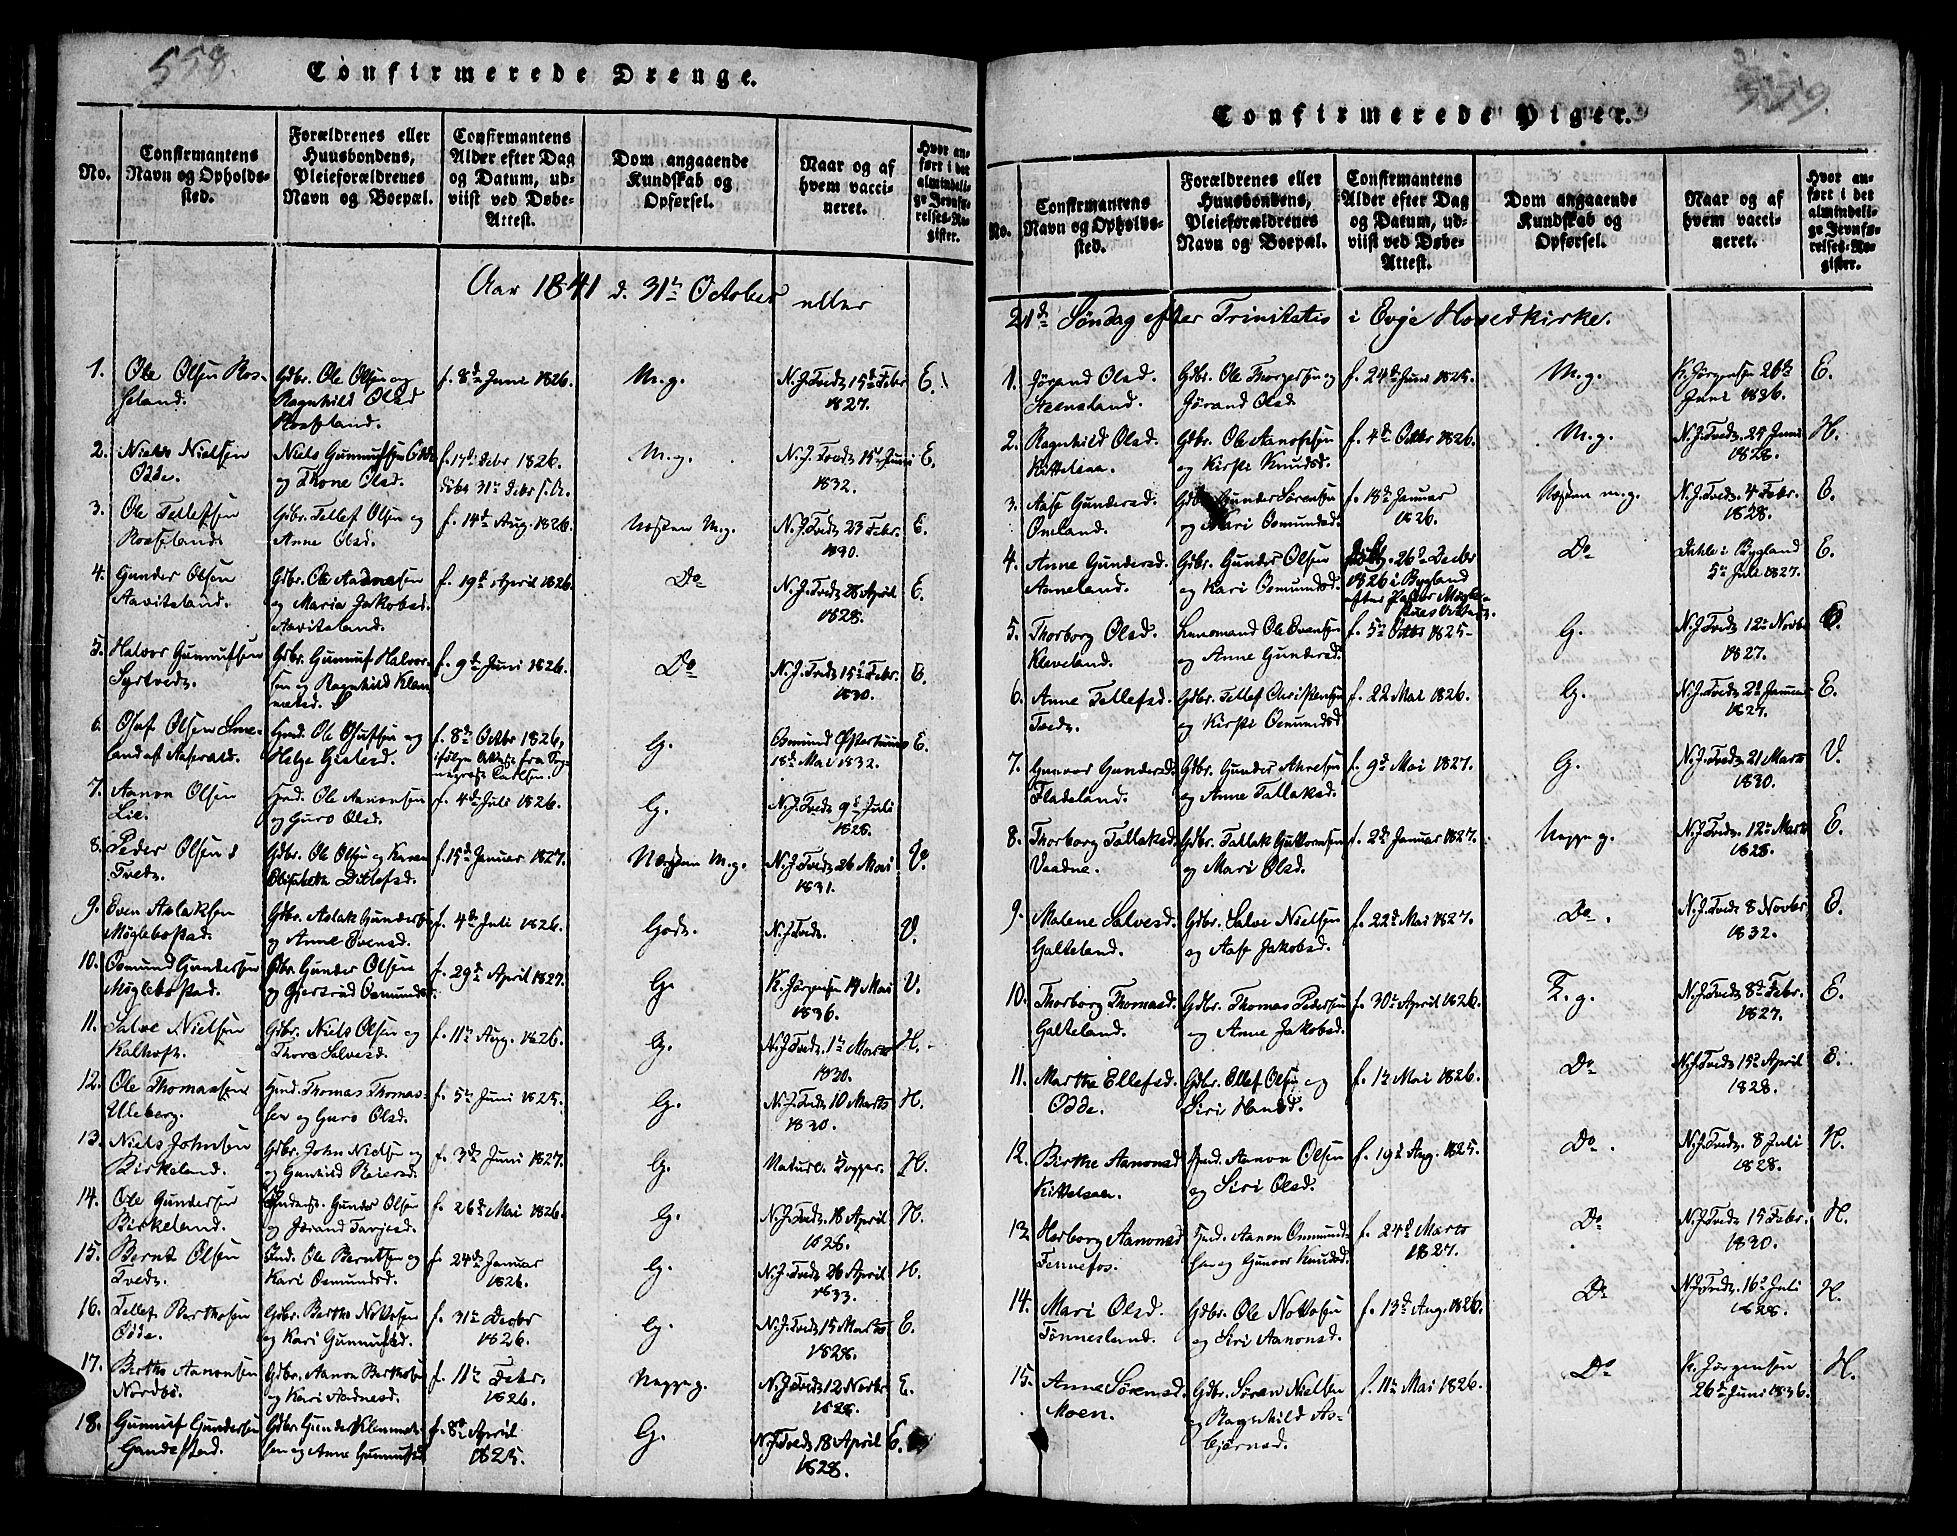 558.
Confirmerede Drenge.
No.
Confirmantens Navn og Opholds-sted.
Forældrenes eller Huusbondens, Pleieforældrenes Navn og Boepæl.
Confirmantens Alder efter Dag og Datum, ud-viist ved Døbe-Attest.
Dom angaaende Kundskab og Opførsel.
Naar og af hvem vacci-neret.
Hvor an-ført i det almindeli-ge Jevnfø-relses-Re-gister.
Aar 1841 d. 31te October eller
1. Ole Olsen Ros- Gdbr. Ole Olsen og f. 8de Juni 1826. M.g. N. J. Tvedt 15de Febr E.
seland. Ragnhild Olsd 1827.
Rosseland.
2. Niels Nielsen Niels Gunnufsen Odde f. 17de Decbr 1826. M.g. N. J. Tvedt 15de Juni E.
Odde. og Thone Olsd. døbt 31te Decbr s. A. 1832.
3. Ole Tellefsen Gdbr. Tellef Olsen og f. 14de Aug. 1826. Næsten M.g. N. J. Tvedt 23 Febr. E.
Rosseland. Anne Olsd. 1830.
4. Gunder Olsen Gdbr. Ole Aadnesen f. 19de April 1826. Do N. J. Tvedt 28 April E.
Aavitsland. og Maria Jakobsd. 1828.
Aavitsland.
5. Halvor Gunnufsen Gdbr. Gunnuf Halvor- f. 9de Juni 1826. Do N. J. Tvedt 15de Febr. E.
Syrtvedt. sen og Ragnhild Klem- 1830.
metsd.
6. Olaf Olsen Hmd. Ole Olufsen og f. 8de Octbr 1826, G. Osmund E.
Helge Gislesd. ifølge Attest fra 18de Mai 1832.
7. Aanon Olsen Hmd. Ole Aanonsen f. 4de Juli 1826. G. N. J. Tvedt 9de Juli
Lie. og Guro Olsd. 1828.
8. Peder Olsen Gdbr. Ole Olsen og Karen f. 15de Januar 1827. Næsten M.g. N. J. Tvedt 26 Mai V.
Tvedt. Elisabeth Ditlefsd. 1831.
9. Even Aslaksen Gdbr. Aslak Gundersen f. 4de Juli 1826. Godt. N. J. Tvedt. V.
Møglebostad. og Anne Evensd.
10. Osmund Gundersen Gdbr. Gunder Olsen f. 29de April 1827. G. K. Jørgensen 19 Mai V.
Møglebostad. og Giertrud Osmundsd. 1836.
11. Salve Nielsen Gdbr. Niels Olsen og f. 11te Aug. 1826. G. N. J. Tvedt. 1te Marts H.
Kalhoft. Thore Salvesd. 1830.
12. Ole Thomassen Hmd. Thomas Thomas- f. 5te Juni 1825. G. N. J. Tvedt 10 Marts H.
Uleberg. sen og Guro Olsd. 1830.
13. Niels Johnsen Gdbr. John Nielsen og f. 3de Juni 1827. G. Naturl. Kopper. H.
Birkeland. og Gunhild Reiersd.
14. Ole Gundersen Gunder Olsen f. 26de Mai 1826. G. N. J. Tvedt. 18 April H.
Birkeland. og Jørand Tarjesd. 1828.
15. Bernt Olsen Ole Berntsen og f. 24de Januar G. N. J. Tvedt 26 April H.
Tvedt. Kari Osmundsd. 1826. 1833.
16. Tellef Berthosen Gdbr. Bertho Nottosen f. 31te Decbr G. N. J. Tvedt 15 Marts E.
Odde. og Kari Gunnufsd. 1826. 1828.
17. Bertho Aanonsen Gdbr. Aanon Berthosen f. 11te Febr. Neppe g. N. J. Tvedt 12 Novbr E.
Nordbø. og Kari Aadnesd. 1826. 1828.
18. Gunnuf Gundersen Gdbr. Gunder Klemmet- f. 8de April G. N. J. Tvedt 18 April E.
Gandestad. sen og Anne Gunnufsd. 1825. 1828.
559
Confirmerede Piger.
No.
Confirmantens Navn og Opholds-sted.
Forældrenes eller Huusbondens, Pleieforældrenes Navn og Boepæl.
Confirmantens Alder efter Dag og Datum, ud-viist ved Døbe-Attest.
Dom angaaende Kundskab og Opførsel.
Naar og af hvem vacci-neret.
Hvor an-ført i det almindeli-ge Jevnfø-relses-Re-gister.
21de Søndag efter Trinitatis i Evje Hovedkirke.
1. Jørand Olsd. Gdbr. Ole Thorgersen og f. 24de Juni 1825. M.g. K. Jørgensen 26te E.
Jørand Olsd. Juni 1836.
2. Ragnhild Olsd. Gdbr. Ole Aanonsen f. 4de Octbr 1826. M.g. N. J. Tvedt 24 Juni H.
og Kirsti Knudsd. 1828.
3. Aase Gundersd. Gdbr. Gunder Sørensen f. 18de Januar Næsten m.g. N. J. Tvedt. 4 Febr. E.
Omland. og Mari Osmundsd. 1826. 1828.
4. Anne Gundersd. Gdbr. Gunder Olsen 26de Decbr Do Dehle i Bygland E.
Arneland. og Kari Osmundsd. 1826 i Bygland 5te Juli 1827.
efter Pastor
5. Thorborg Olsd. Lensmand Ole Evensen f. 5te Octbr 1825. G. N. J. Tvedt 12te Novbr E.
Kleveland. og Anne Gundersd. 1827.
6. Anne Tellefsd. Gdbr. Tellef Christensen f. 22 Mai 1826. G. N. J. Tvedt 22 Januar E.
Tvedt. og Kirsti Osmundsd 1827.
7. Gunvor Gundersd. Gdbr. Gunder f. 9de Mai 1827. G. N. J. Tvedt 21 Marts V.
Fladeland. og Anne Tallaksd. 1830.
8. Thorborg Tallaksd. Gdbr. Tallak Guttormsen f. 2de Januar 1827. Neppe g. N. J. Tvedt. 12te Marts E.
Vaadne. og Mari Olsd. 1828.
9. Malene Salvesd. Gdbr. Salve Nielsen f. 22de Mai 1827. Do. N. J. Tvedt 8 Novbr E.
Galteland. og Aase Jakobsd. 1832.
10. Thorborg Thomasd. Gdbr. Thomas Petersen f. 30te April 1826. T. g. N. J. Tvedt 8de Febr. E.
Galteland. og Anne Jakobsd. 1827.
11. Marthe Ellefsd. Gdbr. Ellef Olsen og f. 12 Mai 1826. Do N. J. Tvedt 15de April E.
Odde. Siri Hansd. 1828.
12. Birthe Aanonsd Hmd. Aanon Olsen f. 19de Aug. 1825. Do. N. J. Tvedt. 8 Juli H.
og Siri Olsd. 1828.
13. Herborg Aanonsd Hmd. Aanon Osmund- f. 24de Marts Do N. J. Tvedt 15 Febr. H.
Fennefos. sen og Gunvor Knudsd. 1827. 1830.
14. Mari Olsd. Gdbr. Ole Nottosen f. 13de Aug. 1826. Do N. J. Tvedt. 16de Juli H.
Tønnesland. og Siri Aanonsd. 1828.
15. Anne Sørensd. Gdbr. Søren Nielsen f. 11te Mai 1826. Do K. Jørgensen H.
Moen. og Ragnhild As- 26de Juni 1836.
bjørnsd.